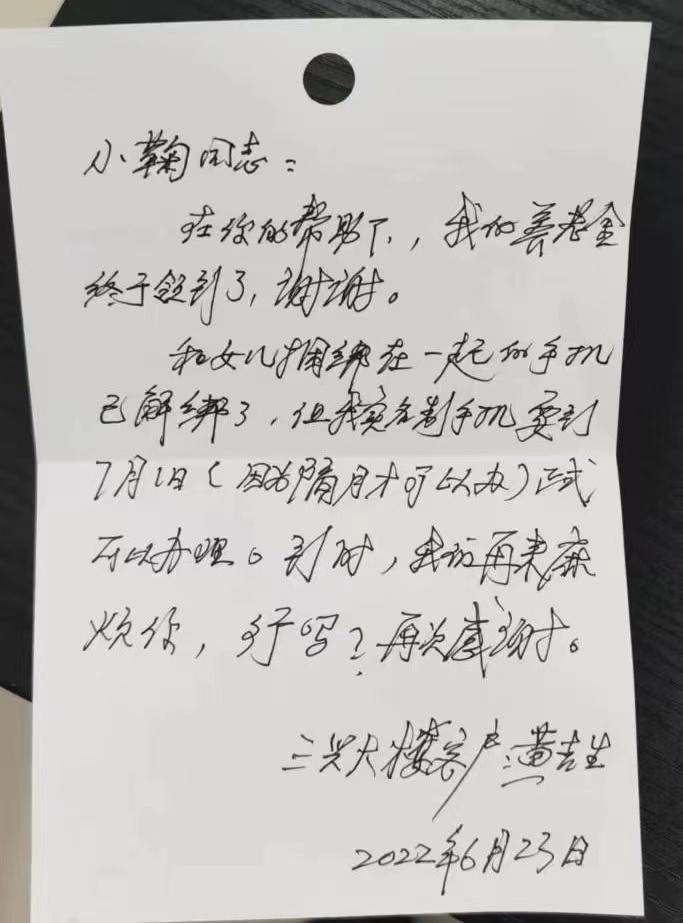 小鞠同志：
在你的帮助下，我的养老金
终于领到了，谢谢。
和女儿捆绑在一起的手机
已解绑了，但我实名制手机要到
7月1日（因为隔月才可以办）正式
可以办理。到时，我们再来麻
烦你，行吗？再次感谢。
三兴大楼客户：黄吉生
2022年6月23日